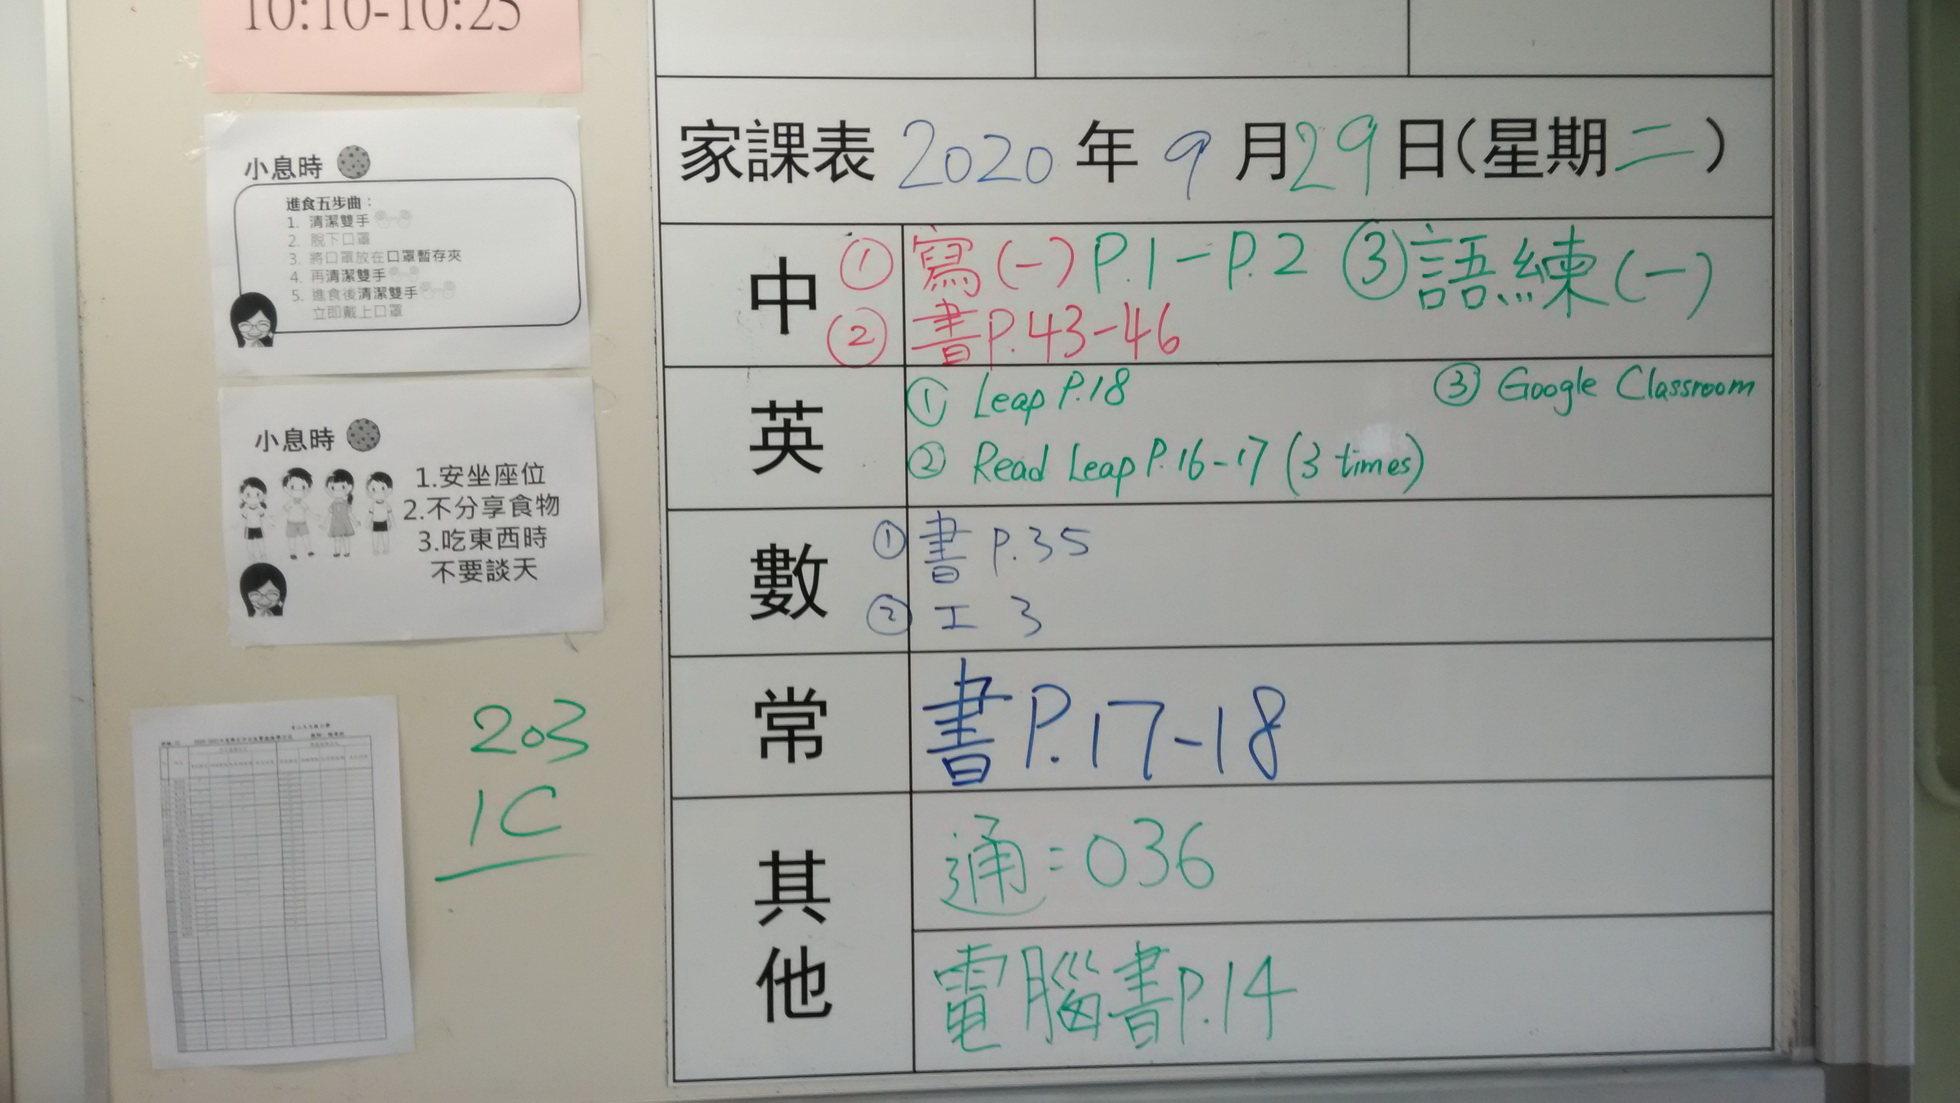 10:10-10:25
小息時
進食五步曲：
1. 清潔雙手
2. 脫下口罩
3. 將口罩放在口罩暫存夾
4. 再清潔雙手
5. 進食後清潔雙手
立即戴上口罩
小息時
1.安坐座位
2.不分享食物
3.吃東西時
不要談天
203
1C
家課表 2020 年 9 月 29 日(星期二)
中 ① 寫(一) P.1－P.2 ③ 語練(一)
② 書 P.43-46
英 ① Leap P.18 ③ Google Classroom
② Read Leap P.16-17 (3 times)
數 ① 書 P.35
② 工 3
常 書 P.17-18
其他 通：036
電腦書 P.14